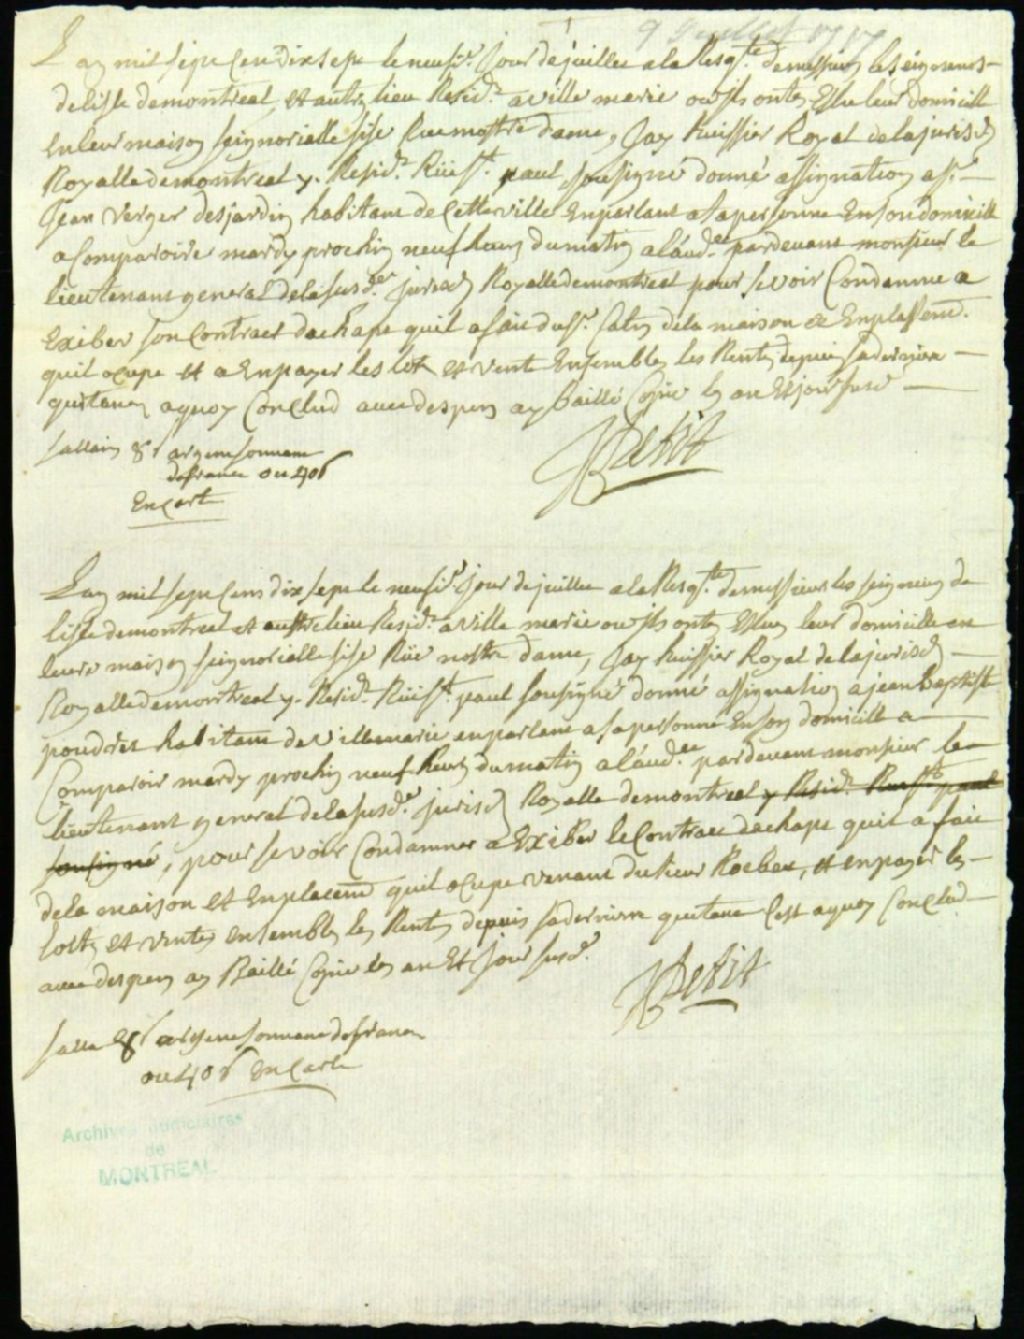 9 Juillet 1717
L'an mil sept cent dix sept le neufie. jour de juillet a la Resqte. de messieurs les seigneurs
de lisle de montreal, et autres lieu Resid. a ville marie ou ils ont Eslu leur domicille
en leur maison seignorialle sise Rue nostre dame, Jay huissier Royal de la jurisd
Royalle de montreal y. Resid. Rüe St. paul sousigné donné assignation a sr.
Jean Verger desjardin habitant de Cette ville en parlant a sa personne En son domicille
a Comparoire mardy prochin neuf heurs du matin a l'aude. pardevant monsieur le
lieutenant general de la susde. jurisd Royalle de montreal pour se voir Condamne a
Exiber son Contract dachapt quil a fait du sr. Catin de la maison et Emplassemt.
quil ocupe et a En payer les lot et vente Ensembles les Rentes depuis sa derniere
quitance a quoy Conclud avec despens ay baillé Copie les an Et jour susd
sallair 8s argent sonnant
de france ou 40s
En Carte
JPetit
L'an mil sept Cens dix sept le neufie. jour de juillet a la Resqte. de messieurs les seigneurs de
lisle de montreal et austre lieu Resid. a Ville marie ou ils ont Eslus leur domicille en
leure maison seignorialle sise Rüe nostre dame, Jay huissier Royal de la jurisd
Royalle de montreal y. Resid. Rüe St. paul sousigné donné assignation a jean Baptist
poudret habitant de Villemarie en parlant a sa personne En son domicille a
Comparoir mardy prochin neuf heurs du matin a l'aude. pardevant monsieur le
lieutenant general de la susde. jurisd Royalle de montreal y Resid. Rue St. paul
sousigné, pour se voir Condamner a Exiber le Contract dachapt quil a fait
de la maison et Emplacemt quil ocupe venant du sieur, et en payer les
lots et ventes ensembles les Rentes depuis sa derniere quitance Cest a quoy Conclud
avec despens ay Baillé Copie les an Et jour susd.
JPetit
salla 8s argent sonnant de france
ou 40s En Carte
Archives Judiciaires
de
MONTREAL